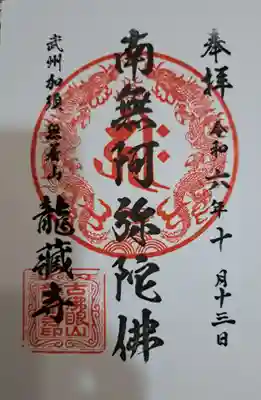 奉拝
令和六年十月十三日
南無阿弥陀佛
武州加須
龍蔵寺